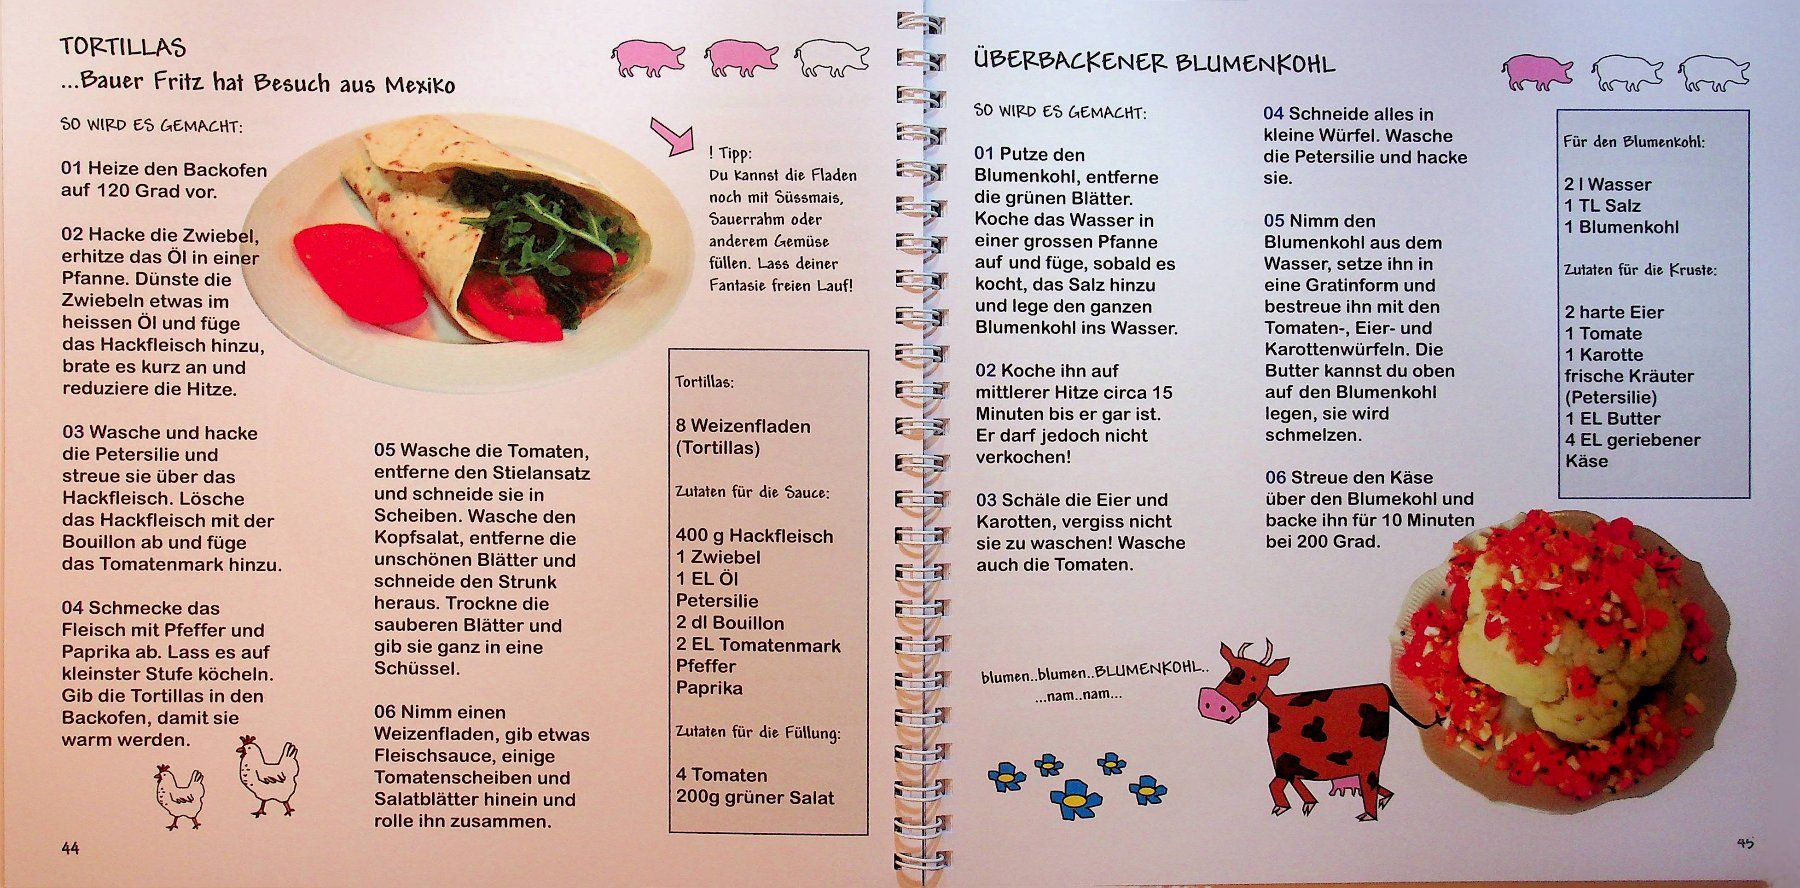 TORTILLAS
...Bauer Fritz hat Besuch aus Mexiko
SO WIRD ES GEMACHT:
01 Heize den Backofen
auf 120 Grad vor.
02 Hacke die Zwiebel,
erhitze das Öl in einer
Pfanne. Dünste die
Zwiebeln etwas im
heissen Öl und füge
das Hackfleisch hinzu,
brate es kurz an und
reduziere die Hitze.
03 Wasche und hacke
die Petersilie und
streue sie über das
Hackfleisch. Lösche
das Hackfleisch mit der
Bouillon ab und füge
das Tomatenmark hinzu.
04 Schmecke das
Fleisch mit Pfeffer und
Paprika ab. Lass es auf
kleinster Stufe köcheln.
Gib die Tortillas in den
Backofen, damit sie
warm werden.
05 Wasche die Tomaten,
entferne den Stielansatz
und schneide sie in
Scheiben. Wasche den
Kopfsalat, entferne die
unschönen Blätter und
schneide den Strunk
heraus. Trockne die
sauberen Blätter und
gib sie ganz in eine
Schüssel.
06 Nimm einen
Weizenfladen, gib etwas
Fleischsauce, einige
Tomatenscheiben und
Salatblätter hinein und
rolle ihn zusammen.
! Tipp:
Du kannst die Fladen
noch mit Süssmais,
Sauerrahm oder
anderem Gemüse
füllen. Lass deiner
Fantasie freien Lauf!
Tortillas:
8 Weizenfladen
(Tortillas)
Zutaten für die Sauce:
400 g Hackfleisch
1 Zwiebel
1 EL Öl
Petersilie
2 dl Bouillon
2 EL Tomatenmark
Pfeffer
Paprika
Zutaten für die Füllung:
4 Tomaten
200g grüner Salat
44
ÜBERBACKENER BLUMENKOHL
SO WIRD ES GEMACHT:
01 Putze den
Blumenkohl, entferne
die grünen Blätter.
Koche das Wasser in
einer grossen Pfanne
auf und füge, sobald es
kocht, das Salz hinzu
und lege den ganzen
Blumenkohl ins Wasser.
02 Koche ihn auf
mittlerer Hitze circa 15
Minuten bis er gar ist.
Er darf jedoch nicht
verkochen!
03 Schäle die Eier und
Karotten, vergiss nicht
sie zu waschen! Wasche
auch die Tomaten.
04 Schneide alles in
kleine Würfel. Wasche
die Petersilie und hacke
sie.
05 Nimm den
Blumenkohl aus dem
Wasser, setze ihn in
eine Gratinform und
bestreue ihn mit den
Tomaten-, Eier- und
Karottenwürfeln. Die
Butter kannst du oben
auf den Blumenkohl
legen, sie wird
schmelzen.
06 Streue den Käse
über den Blumekohl und
backe ihn für 10 Minuten
bei 200 Grad.
Für den Blumenkohl:
2 l Wasser
1 TL Salz
1 Blumenkohl
Zutaten für die Kruste:
2 harte Eier
1 Tomate
1 Karotte
frische Kräuter
(Petersilie)
1 EL Butter
4 EL geriebener
Käse
blumen..blumen..BLUMENKOHL..
...nam..nam...
45